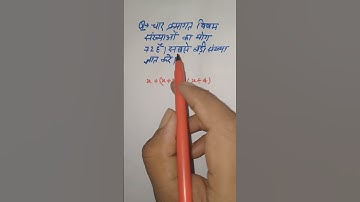 Q→ चार क्रमागत विषम
संख्याओं का योग
72 है। सबसे बड़ी संख्या
ज्ञात करें
x + (x+ (x+4)